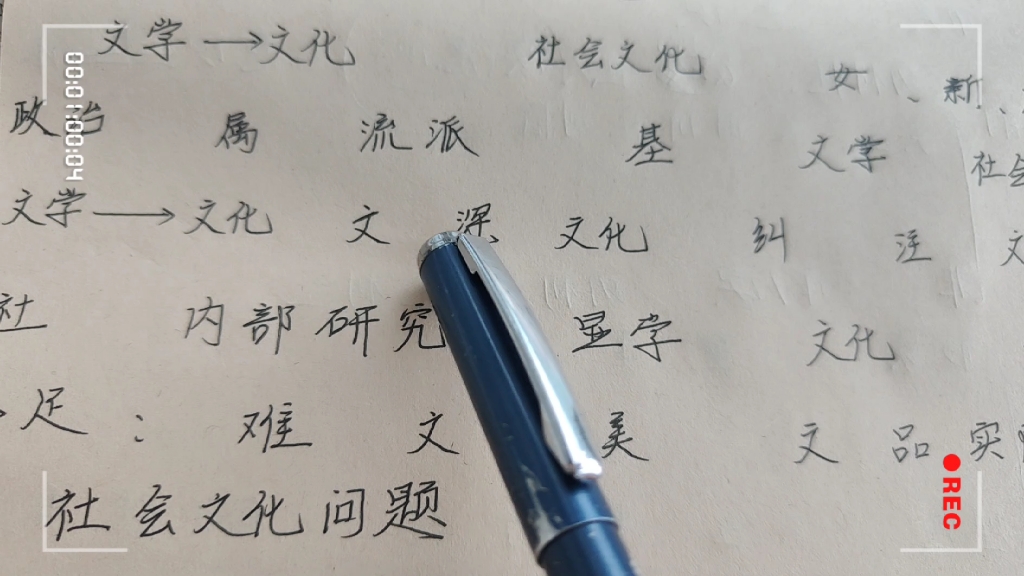 文学→文化 社会文化 女、新、
政治 属 流派 基 文学 社会
文学→文化 文 深 文化 纠 注 文
社 内部研究 显学 文化
足： 难 文 美 文 品 实
社会文化问题
00:00:10:00:04
REC